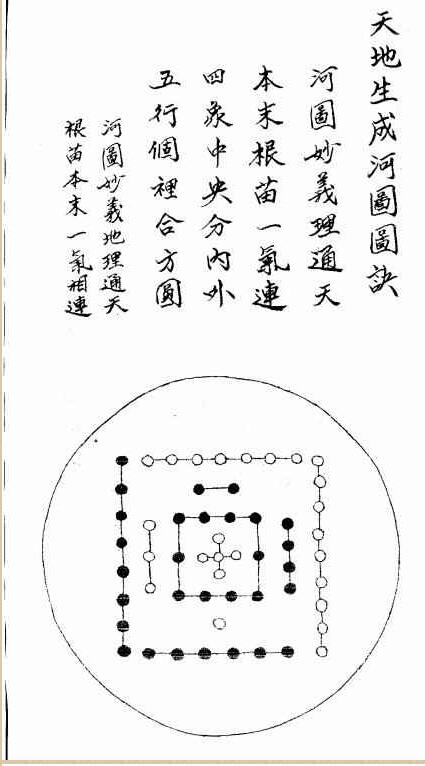 天地生成河圖圖訣
河圖妙義理通天
本末根苗一氣連
四象中央分內外
五行個裡合方圓
河圖妙義地理通天
根苗本末一氣相連